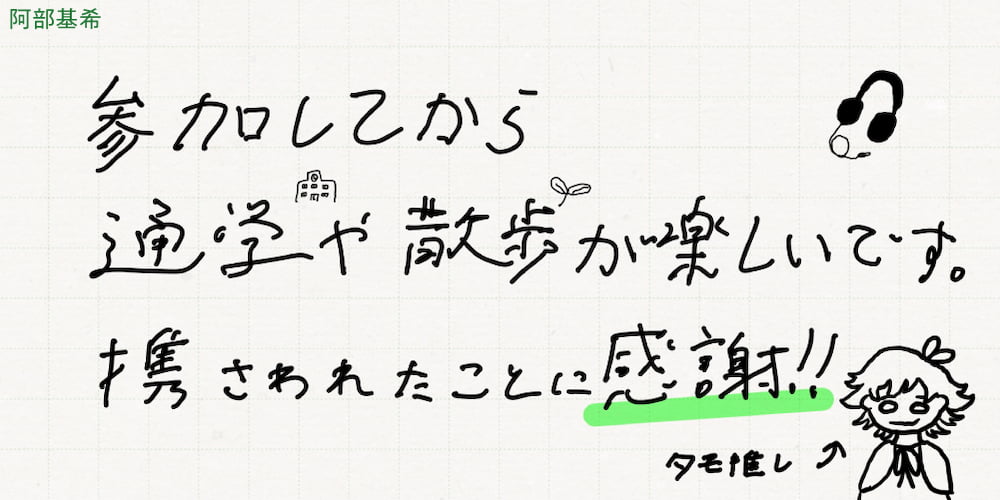 阿部基希
参加してから
通学や散歩が楽しいです。
携さわれたことに感謝!!
タモ推し